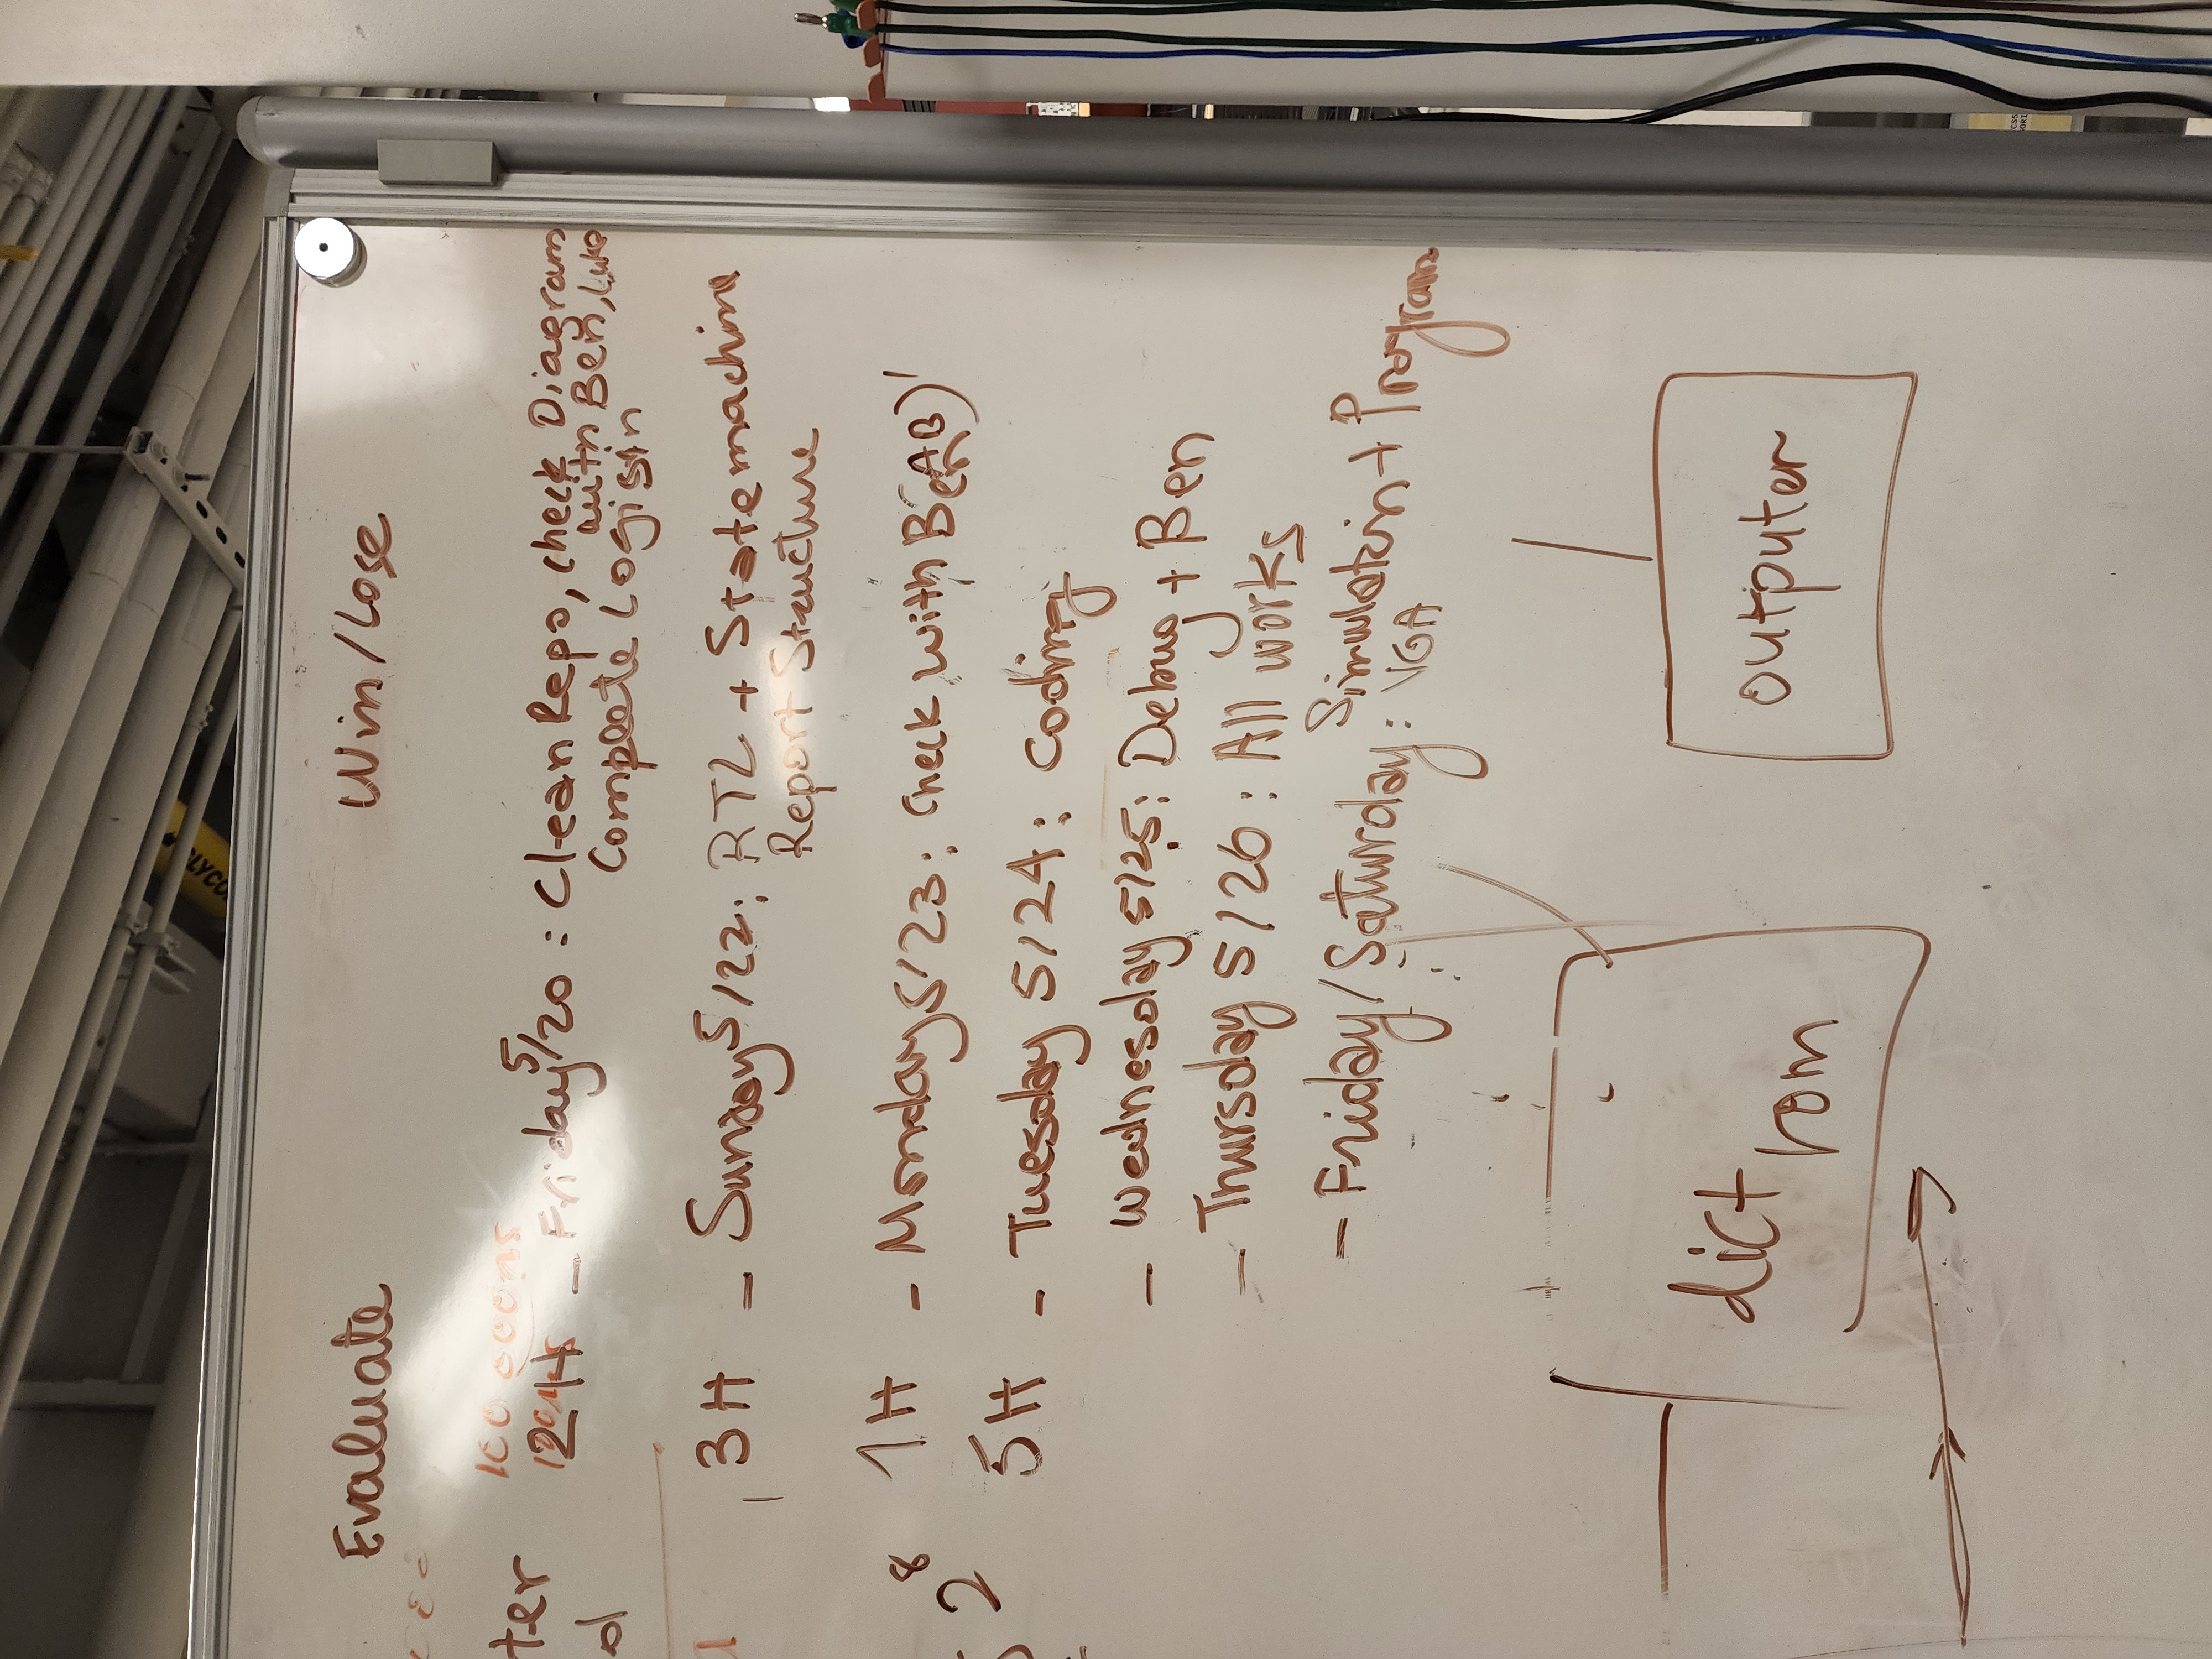 Evaluate
Win/Lose
100 000ns
ter
2H - Friday 5/20 : Clean Repo, check Diagram
with Ben, Luke
Complete Logisin
d
3H - Sunday 5/22: RTL + State machine
Report Structure
1H - Monday 5/23: Check with Ben
AB)'
2^8
5H - Tuesday 5/24: Coding
- Wednesday 5/25: Debug + Ben
- Thursday 5/26: All works
- Friday/Saturday: Simulatoin + Program
VGA
dict
rom
outputer